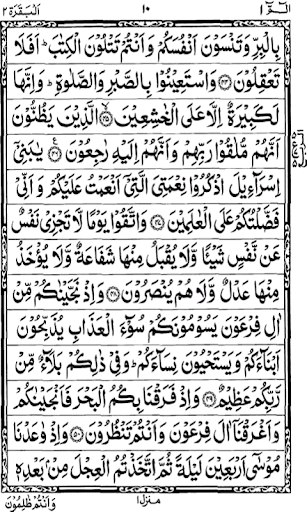 البقرة ٢ ١٠ الٓمّٓ ١
بِالْبِرِّ وَتَنْسَوْنَ اَنْفُسَكُمْ وَاَنْتُمْ تَتْلُوْنَ الْكِتٰبَ ؕ اَفَلَا
تَعْقِلُوْنَ ﴿۴۴﴾ وَاسْتَعِيْنُوْا بِالصَّبْرِ وَالصَّلٰوةِ ؕ وَاِنَّهَا
لَكَبِيْرَةٌ اِلَّا عَلَى الْخٰشِعِيْنَ ﴿۴۵﴾ الَّذِيْنَ يَظُنُّوْنَ
اَنَّهُمْ مُّلٰقُوْا رَبِّهِمْ وَاَنَّهُمْ اِلَيْهِ رٰجِعُوْنَ ﴿۴۶﴾ يٰبَنِيْٓ
اِسْرَآءِيْلَ اذْكُرُوْا نِعْمَتِيَ الَّتِيْٓ اَنْعَمْتُ عَلَيْكُمْ وَاَنِّيْ
فَضَّلْتُكُمْ عَلَى الْعٰلَمِيْنَ ﴿۴۷﴾ وَاتَّقُوْا يَوْمًا لَّا تَجْزِيْ نَفْسٌ
عَنْ نَّفْسٍ شَيْئًا وَّلَا يُقْبَلُ مِنْهَا شَفَاعَةٌ وَّلَا يُؤْخَذُ
مِنْهَا عَدْلٌ وَّلَا هُمْ يُنْصَرُوْنَ ﴿۴۸﴾ وَاِذْ نَجَّيْنٰكُمْ مِّنْ
اٰلِ فِرْعَوْنَ يَسُوْمُوْنَكُمْ سُوْٓءَ الْعَذَابِ يُذَبِّحُوْنَ
اَبْنَآءَكُمْ وَيَسْتَحْيُوْنَ نِسَآءَكُمْ ؕ وَفِيْ ذٰلِكُمْ بَلَآءٌ مِّنْ
رَّبِّكُمْ عَظِيْمٌ ﴿۴۹﴾ وَاِذْ فَرَقْنَا بِكُمُ الْبَحْرَ فَاَنْجَيْنٰكُمْ
وَاَغْرَقْنَآ اٰلَ فِرْعَوْنَ وَاَنْتُمْ تَنْظُرُوْنَ ﴿۵۰﴾ وَاِذْ وٰعَدْنَا
مُوْسٰٓى اَرْبَعِيْنَ لَيْلَةً ثُمَّ اتَّخَذْتُمُ الْعِجْلَ مِنْۢ بَعْدِهٖ
منزل ١
وَاَنْتُمْ ظٰلِمُوْنَ